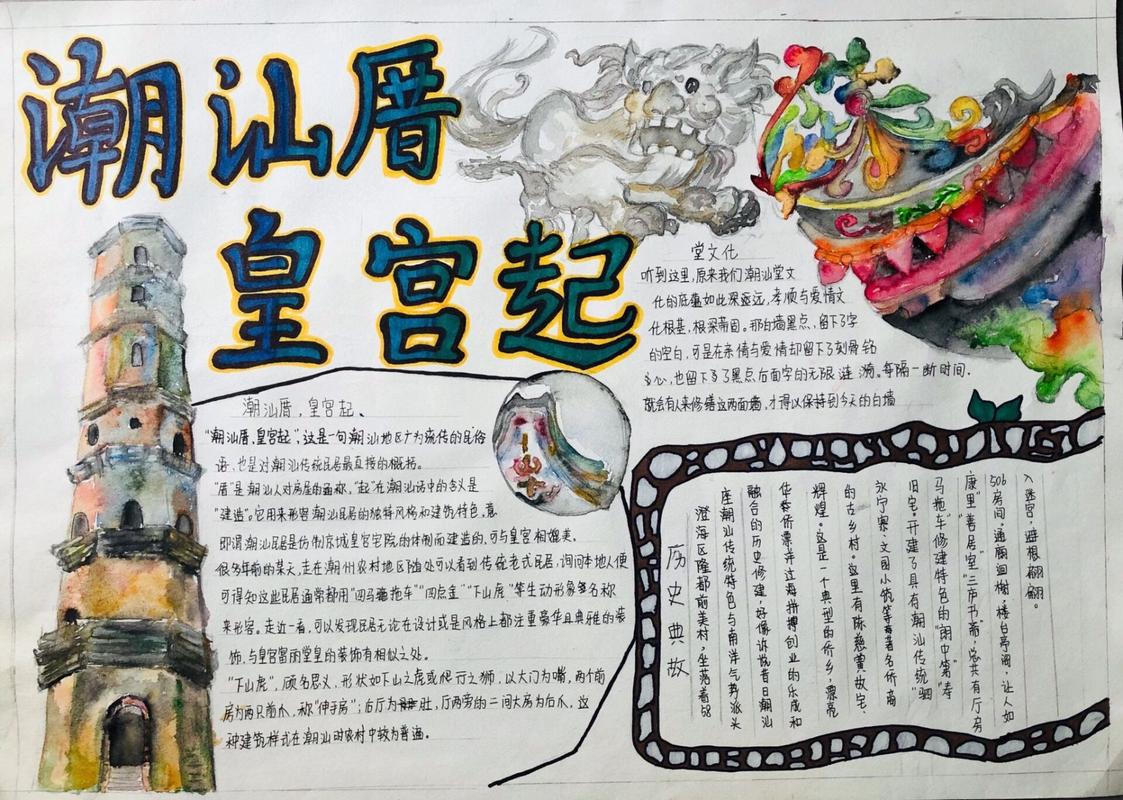 潮汕厝
皇宫起
潮汕厝,皇宫起、
“潮汕厝,皇宫起”,这是一句潮汕地区广为流传的民俗
语,也是对潮汕传统民居最直接的概括。
“厝”是潮汕人对房屋的通称,“起”在潮汕话中的含义是
“建造”。它用来形容潮汕民居的独特风格和建筑特色,意
即谓潮汕民居是仿制京城皇宫宅院的体制而建造的,可与皇宫相媲美。
很多年前的某天,走在潮州农村地区随处可以看到传统老式民居,询问本地人便
可得知这些民居通常都用“四马拖车”“四点金”“下山虎”等生动形象名称
来形容。走近一看,可以发现民居无论在设计或是风格上都注重豪华且典雅的装
饰,与皇宫富丽堂皇的装饰有相似之处。
“下山虎”,顾名思义,形状如下山之虎或爬行之狮,以大门为嘴,两个前
房为两只前爪,称“伸手房”;后厅为肚,厅两旁的二间大房为后爪,这
种建筑样式在潮汕的农村中较为普遍。
堂文化
听到这里,原来我们潮汕堂文
化的底蕴如此深远,孝顺与爱情文
化根基,根深蒂固。那白墙黑点,留下了字
的空白,可是在亲情与爱情却留下了刻骨铭
心,也留下了黑点后面字的无限涟漪。每隔一断时间,
就会有人来修缮这两面墙,才得以保持到今天的白墙
历史典故
澄海区隆都前美村,坐落着58
座潮汕传统特色与南洋气势派头
融合的历史修建,好像诉说昔日潮汕
华侨漂洋过海拼搏创业的乐成和
辉煌。这是一个典型的侨乡,漂亮
的古乡村。这里有陈慈黉故宅、
永宁寨、文园小筑等著名侨商
旧宅。开建了具有潮汕传统“驷
马拖车”修建特色的“郎中第”“寿
康里”“善居室”“三庐书”斋,总共有厅房
506房间,通廊迴榭,楼台亭阁,让人如
入迷宫,